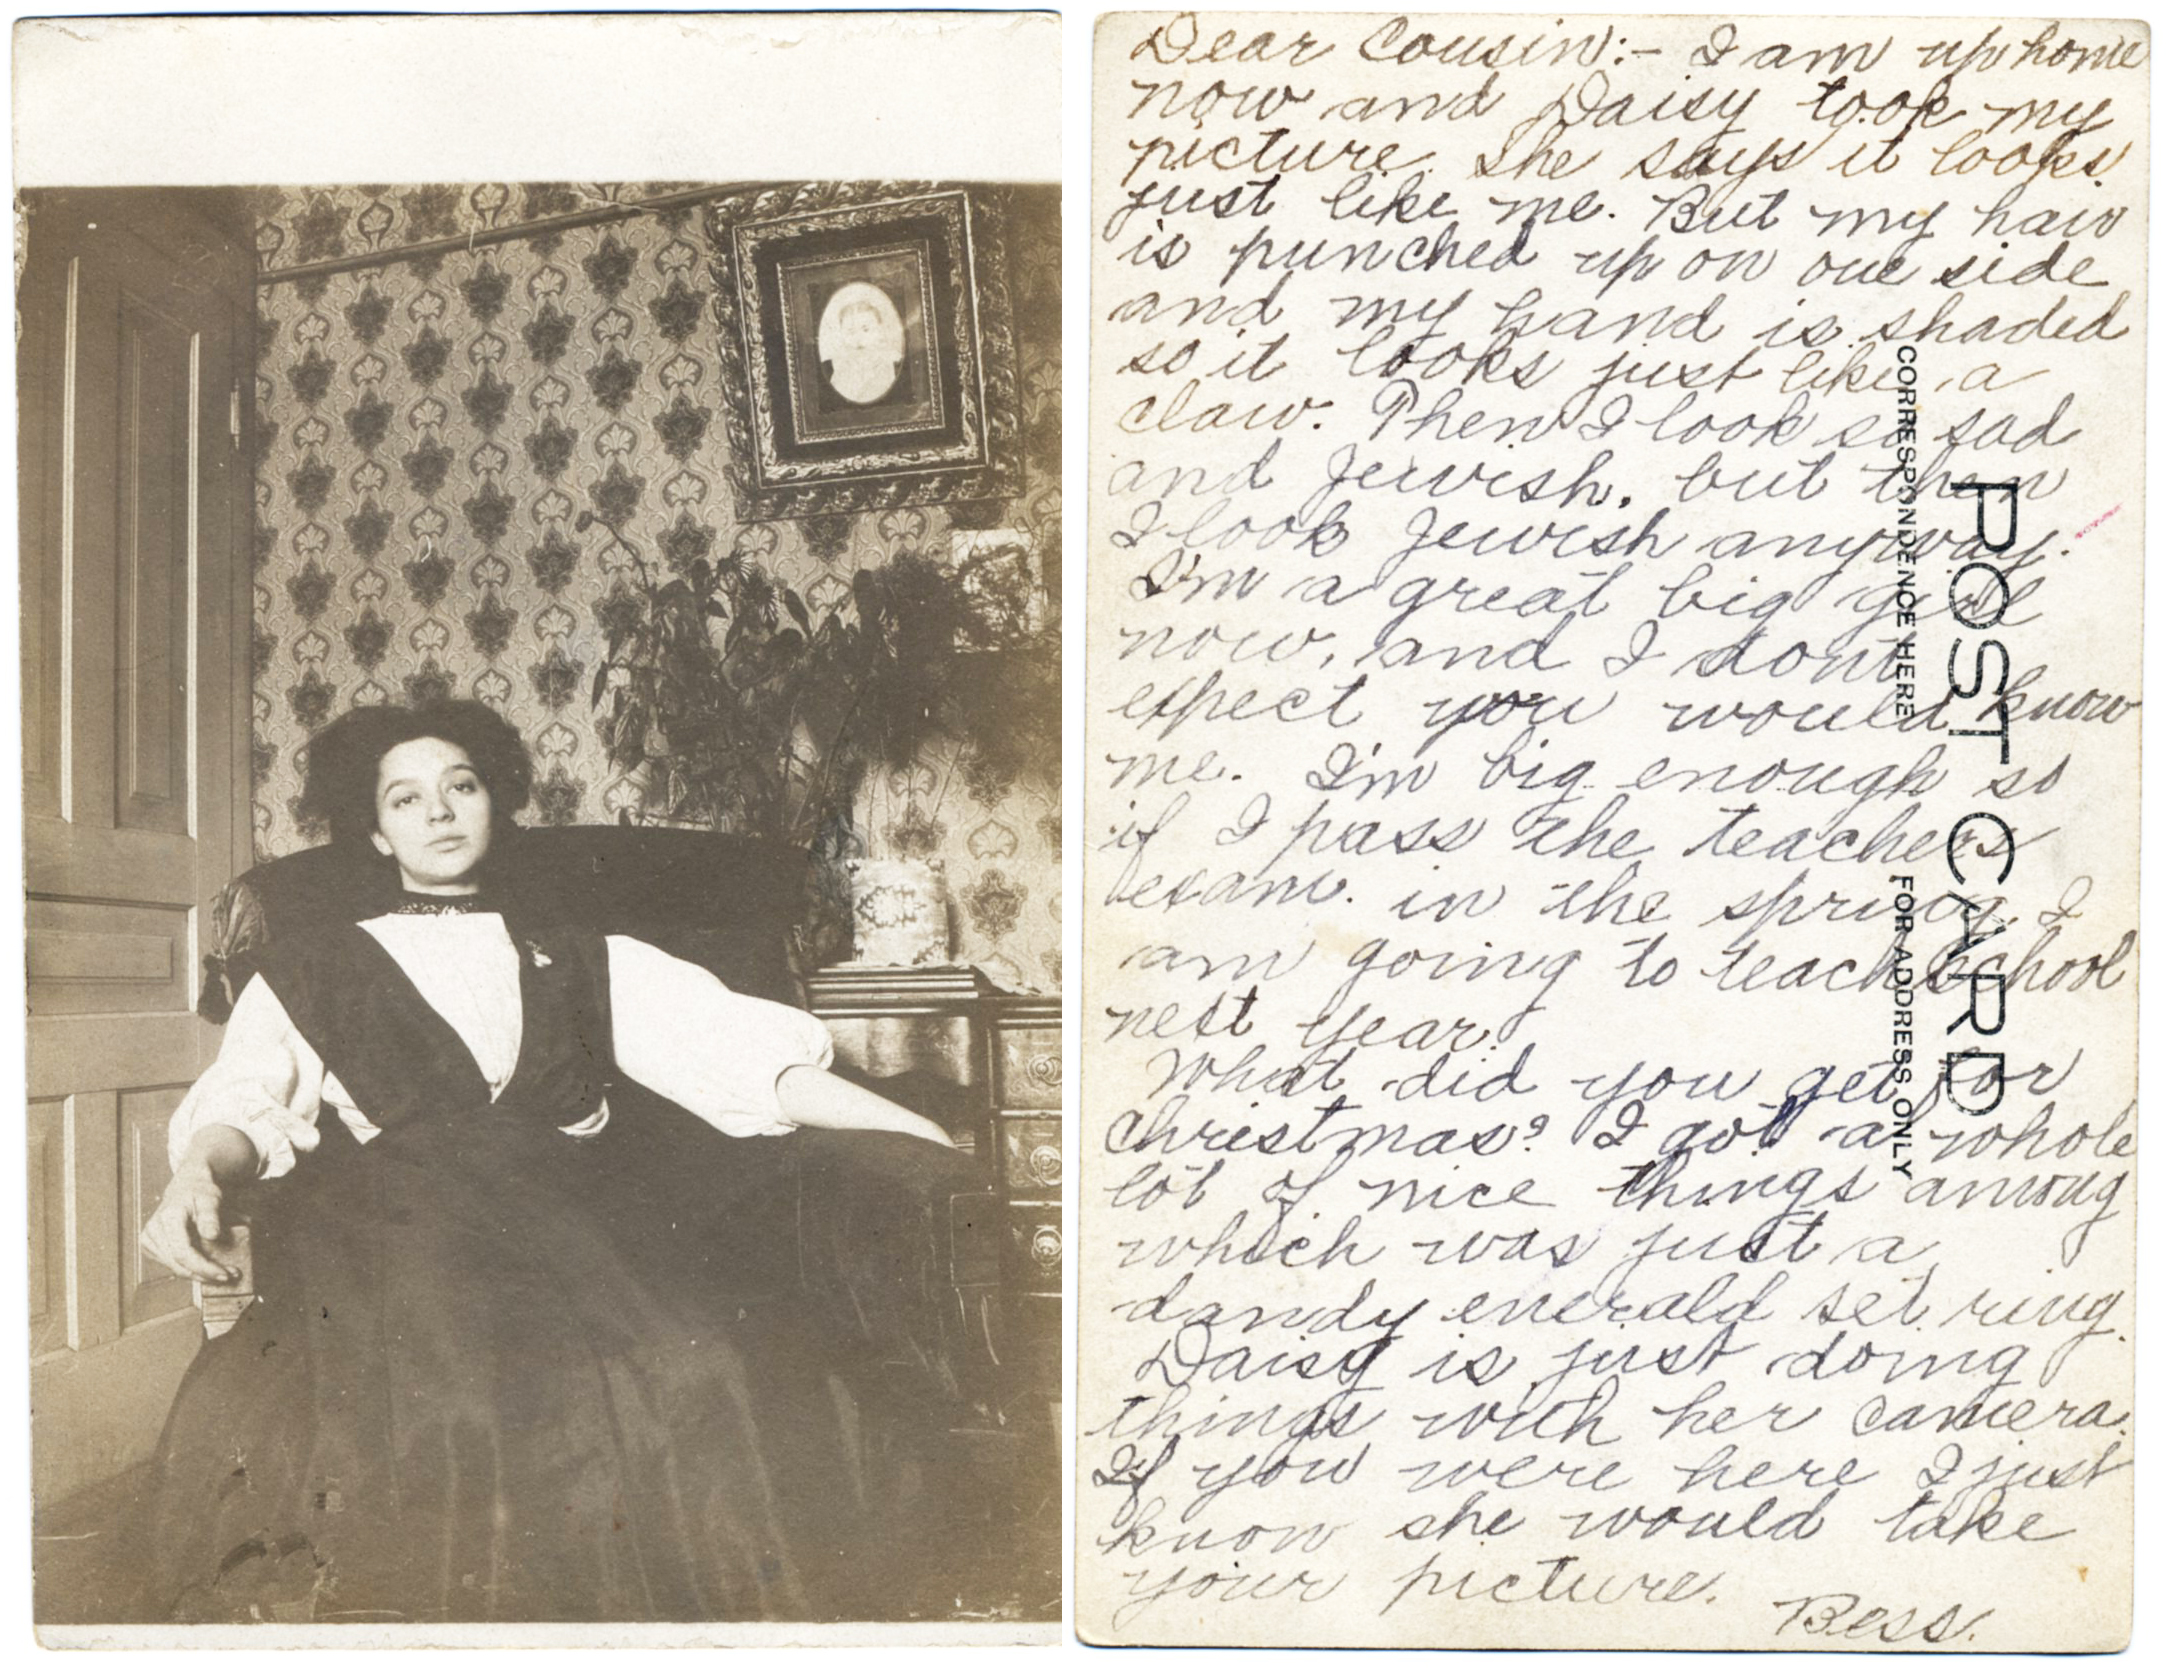 Dear Cousin:- I am up home
now and Daisy took my
picture. She says it looks
just like me. But my hair
is punched up on one side
and my hand is shaded
so it looks just like a
claw. Then I look so sad
and Jewish, but then
I look Jewish anyway.
I'm a great big girl
now, and I don't
expect you would know
me. I'm big enough so
if I pass the teachers
exam. in the spring I
am going to teach school
next year.
What did you get for
Christmas? I got a whole
lot of nice things among
which was just a
dandy emerald set ring.
Daisy is just doing
things with her camera.
If you were here I just
know she would take
your picture.
Bess.
POST CARD
CORRESPONDENCE HERE
FOR ADDRESS ONLY